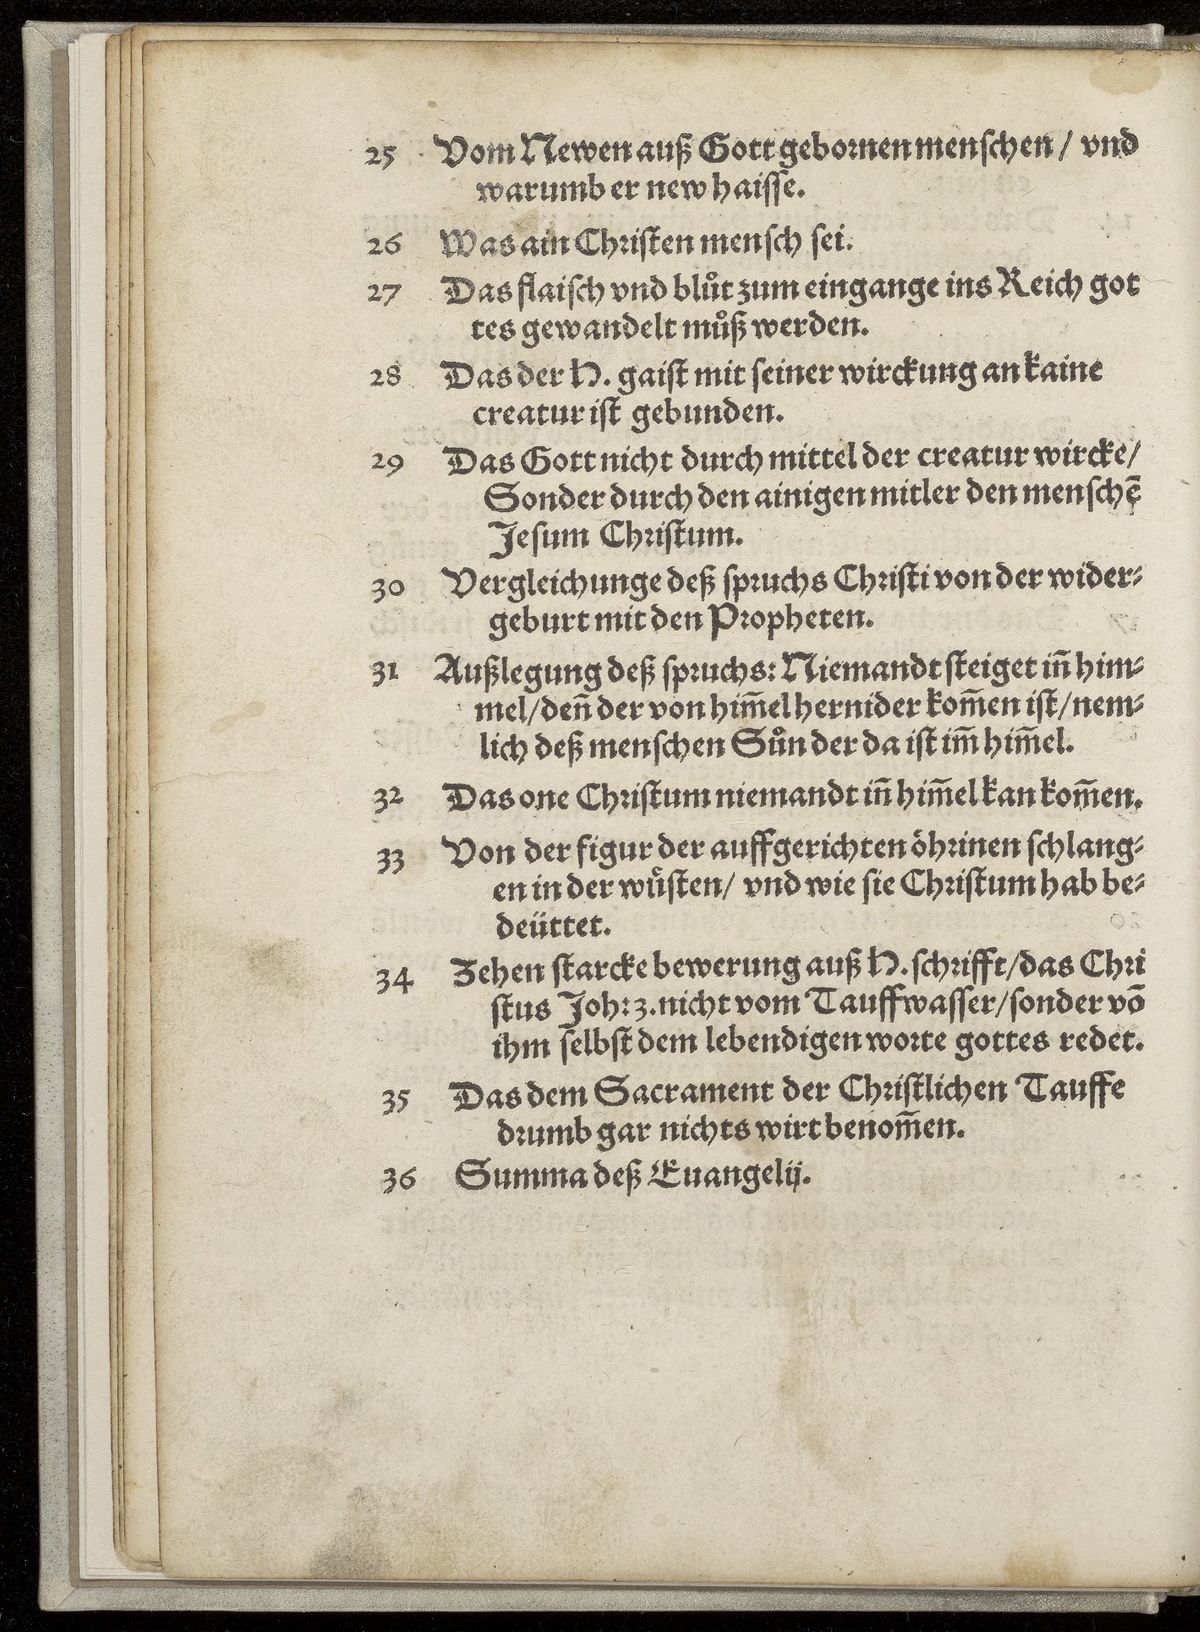 25 Vom Newen auß Gott gebornen menschen / vnd
warumb er new haisse.
26 Was ain Christen mensch sei.
27 Das flaisch vnd blůt zum eingange ins Reich got
tes gewandelt můß werden.
28 Das der H. gaist mit seiner wirckung an kaine
creatur ist gebunden.
29 Das Gott nicht durch mittel der creatur wircke/
Sonder durch den ainigen mitler den menschē
Jesum Christum.
30 Vergleichunge deß spruchs Christi von der wider⸗
geburt mit den Propheten.
31 Außlegung deß spruchs: Niemandt steiget in̄ him⸗
mel/den̄ der von him̄el hernider kom̄en ist/nem⸗
lich deß menschen Sůn der da ist im̄ him̄el.
32 Das one Christum niemandt in̄ him̄el kan kom̄en.
33 Von der figur der auffgerichten öhrinen schlang⸗
en in der wuͤsten/ vnd wie sie Christum hab be⸗
deüttet.
34 Zehen starcke bewerung auß H. schrifft/das Chri
stus Joh: 3. nicht vom Tauffwasser/sonder vō
ihm selbst dem lebendigen worte gottes redet.
35 Das dem Sacrament der Christlichen Tauffe
drumb gar nichts wirt benom̄en.
36 Summa deß Euangelij.